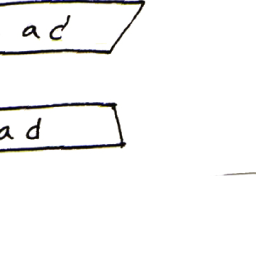 ad
ad